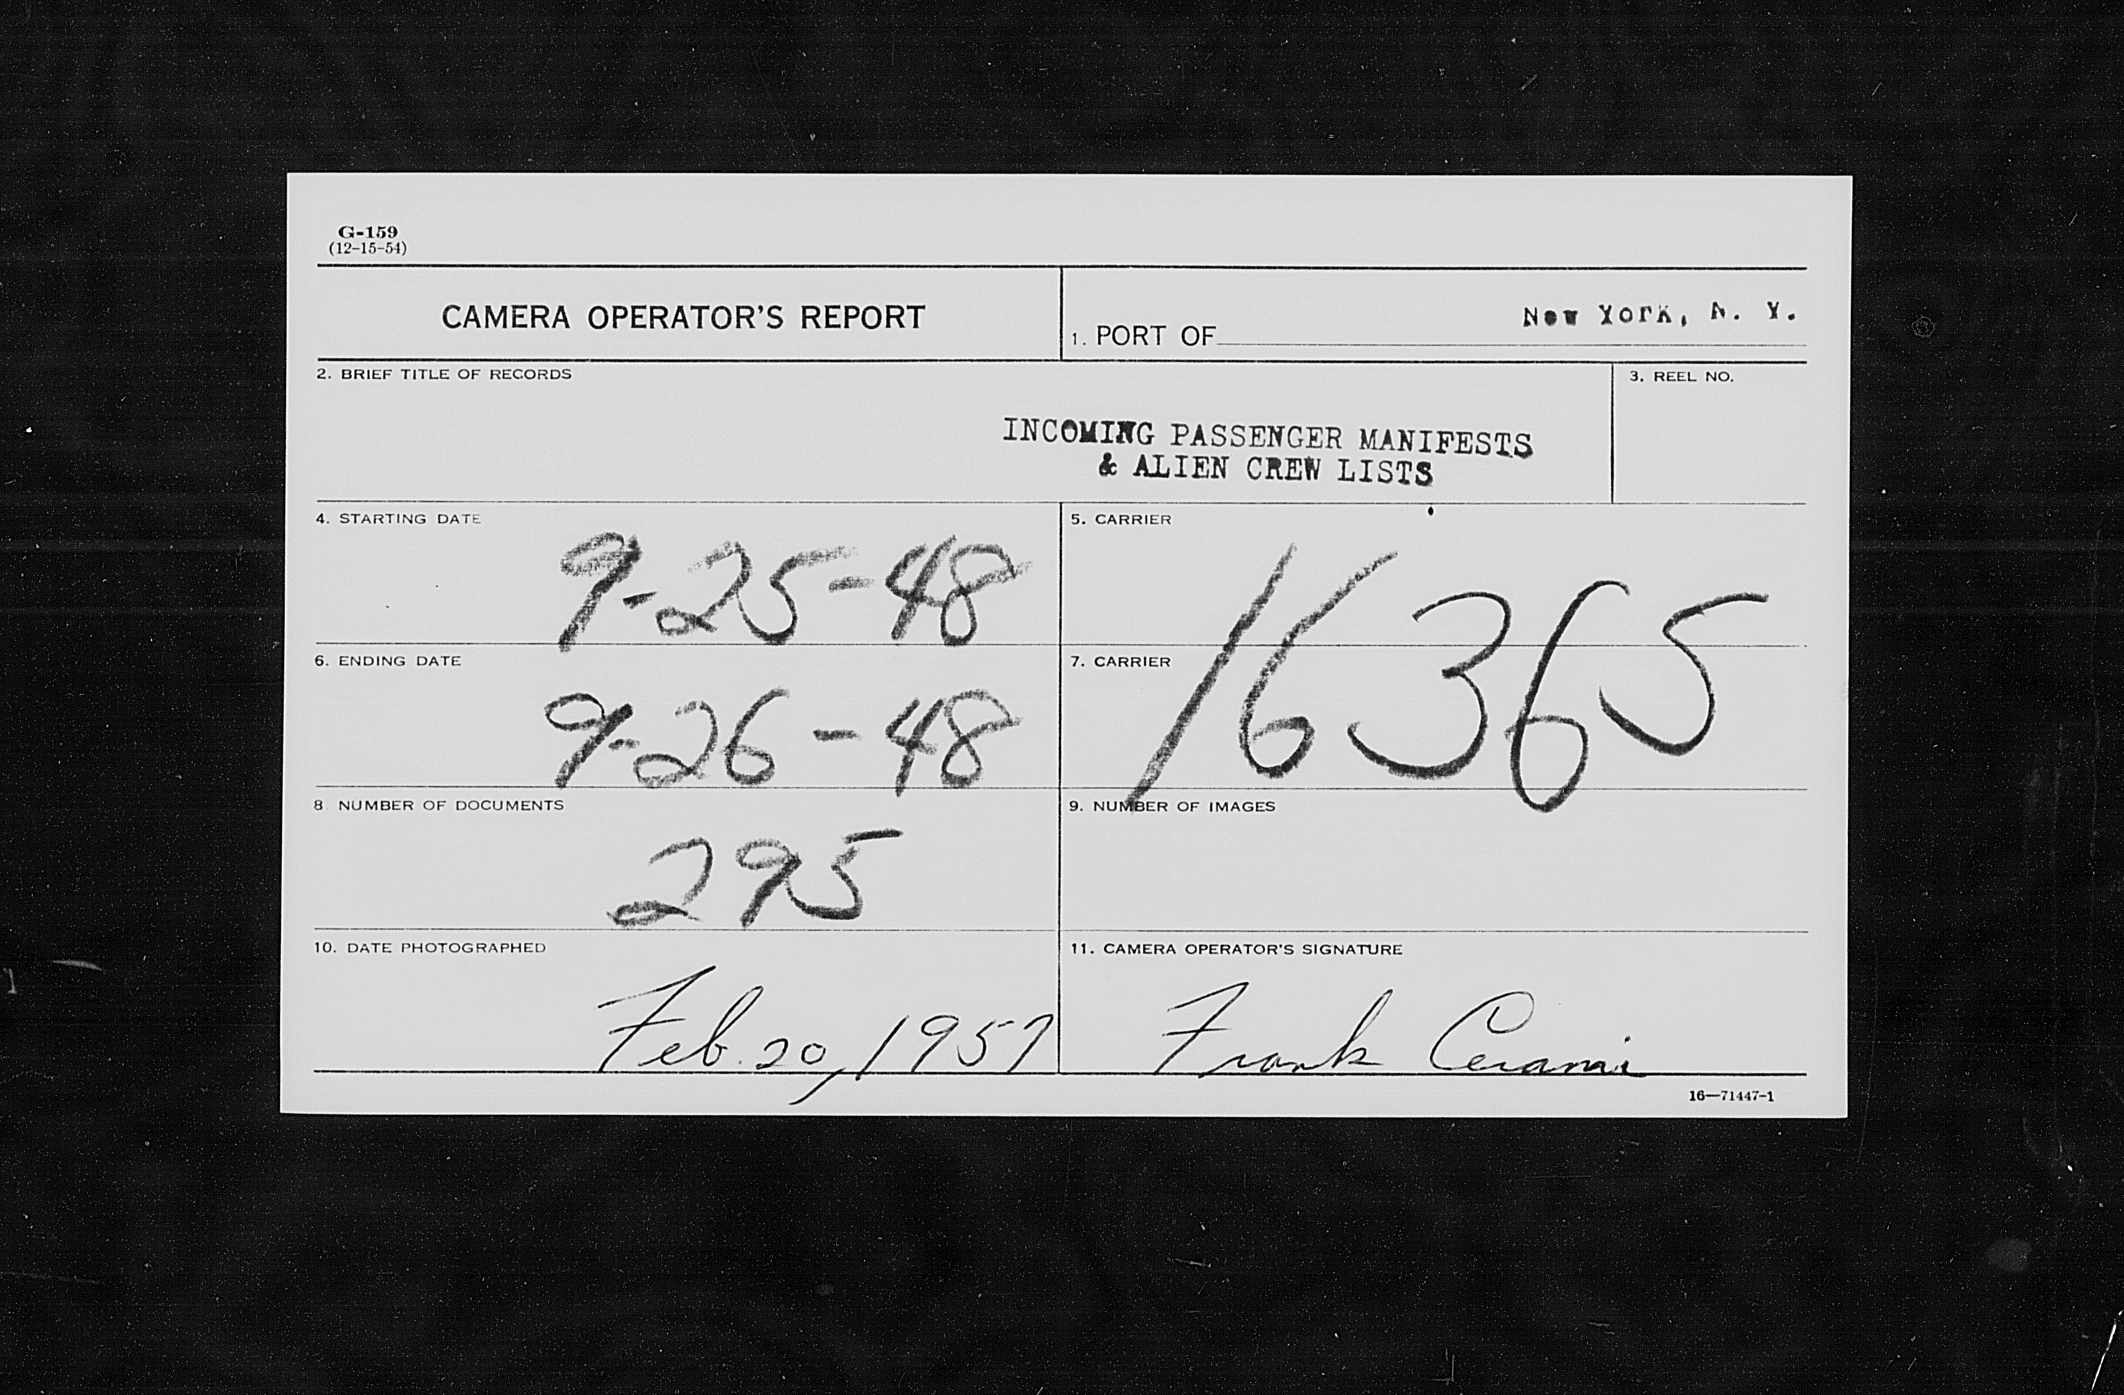 G-159
(12-15-54)
CAMERA OPERATOR'S REPORT
1. PORT OF New York, N. Y.
2. BRIEF TITLE OF RECORDS
3. REEL NO.
INCOMING PASSENGER MANIFESTS
& ALIEN CREW LISTS
4. STARTING DATE
9-25-48
5. CARRIER
16365
6. ENDING DATE
9-26-48
7. CARRIER
8 NUMBER OF DOCUMENTS
295
9. NUMBER OF IMAGES
10. DATE PHOTOGRAPHED
Feb. 20, 1957
11. CAMERA OPERATOR'S SIGNATURE
Frank Cerami
16—71447-1